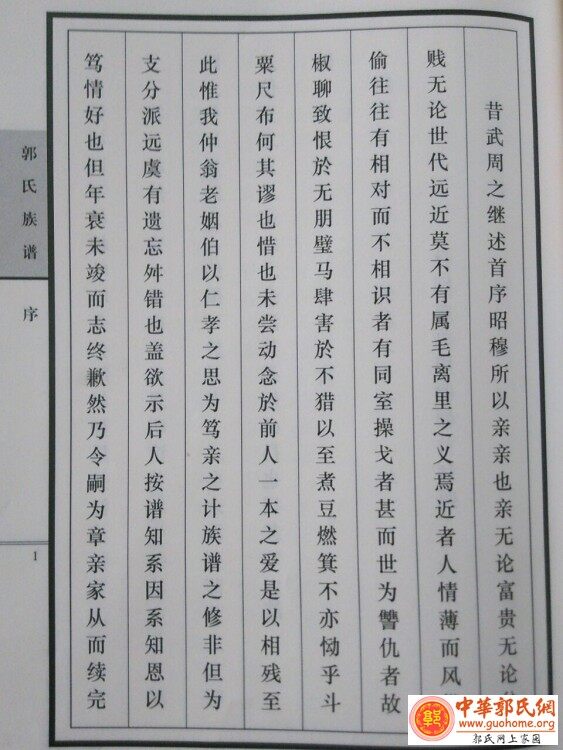 昔武周之继述首序昭穆所以亲亲也亲无论富贵无论
贱无论世代远近莫不有属毛离里之义焉近者人情薄而风
偷往往有相对而不相识者有同室操戈者甚而世为讐仇者故
椒聊致恨於无朋璧马肆害於不猎以至煮豆燃箕不亦恸乎斗
粟尺布何其谬也惜也未尝动念於前人一本之爱是以相残至
此惟我仲翁老姻伯以仁孝之思为笃亲之计族谱之修非但为
支分派远虞有遗忘舛错也盖欲示后人按谱知系因系知恩以
笃情好也但年衰未竣而志终歉然乃令嗣为章亲家从而续完
郭氏族谱
序
1
中華郭氏網
www.guohome.org
郭氏网上家园